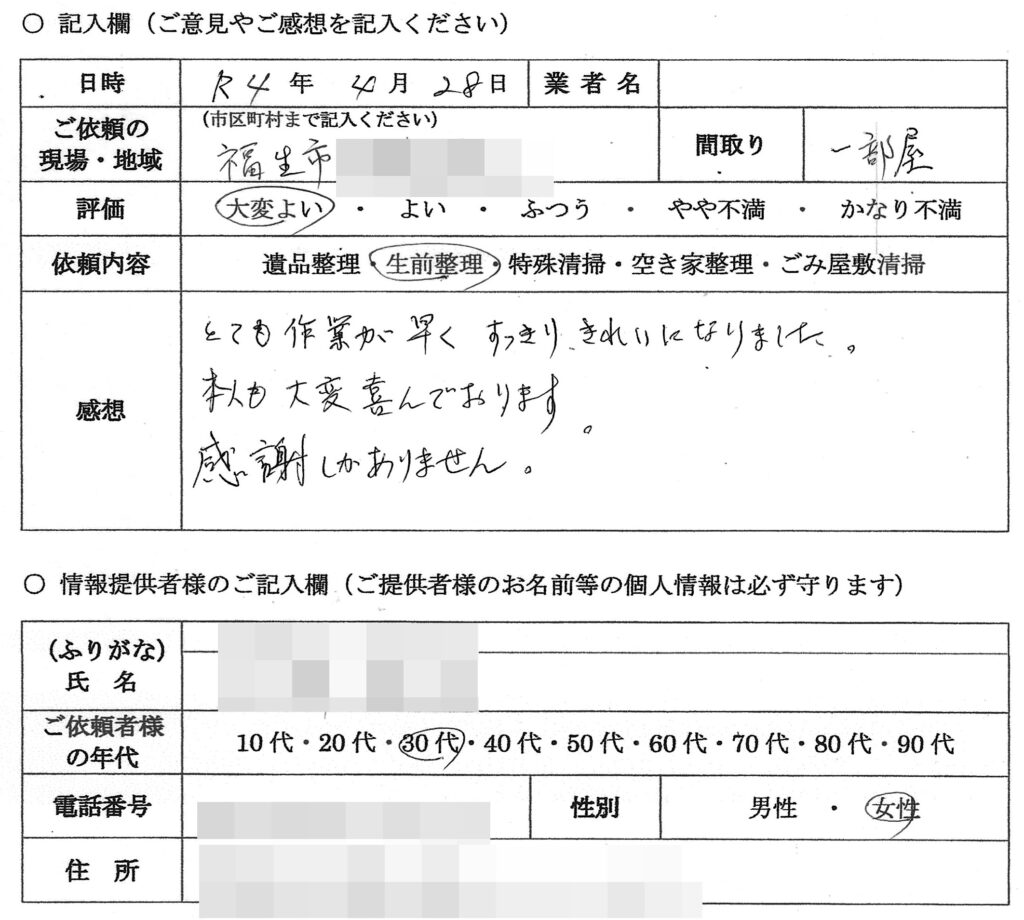 ○ 記入欄（ご意見やご感想を記入ください）
日時 R4年 4月 28日 業者名
ご依頼の現場・地域 (市区町村まで記入ください) 福生市 間取り 一部屋
評価 大変よい ・ よい ・ ふつう ・ やや不満 ・ かなり不満
依頼内容 遺品整理・生前整理・特殊清掃・空き家整理・ごみ屋敷清掃
感想
とても作業が早く すっきり きれいになりました。
本人も大変喜んでおります。
感謝しかありません。
○ 情報提供者様のご記入欄（ご提供者様のお名前等の個人情報は必ず守ります）
(ふりがな)
氏 名
ご依頼者様の年代 10代・20代・30代・40代・50代・60代・70代・80代・90代
電話番号 性別 男性 ・ 女性
住 所